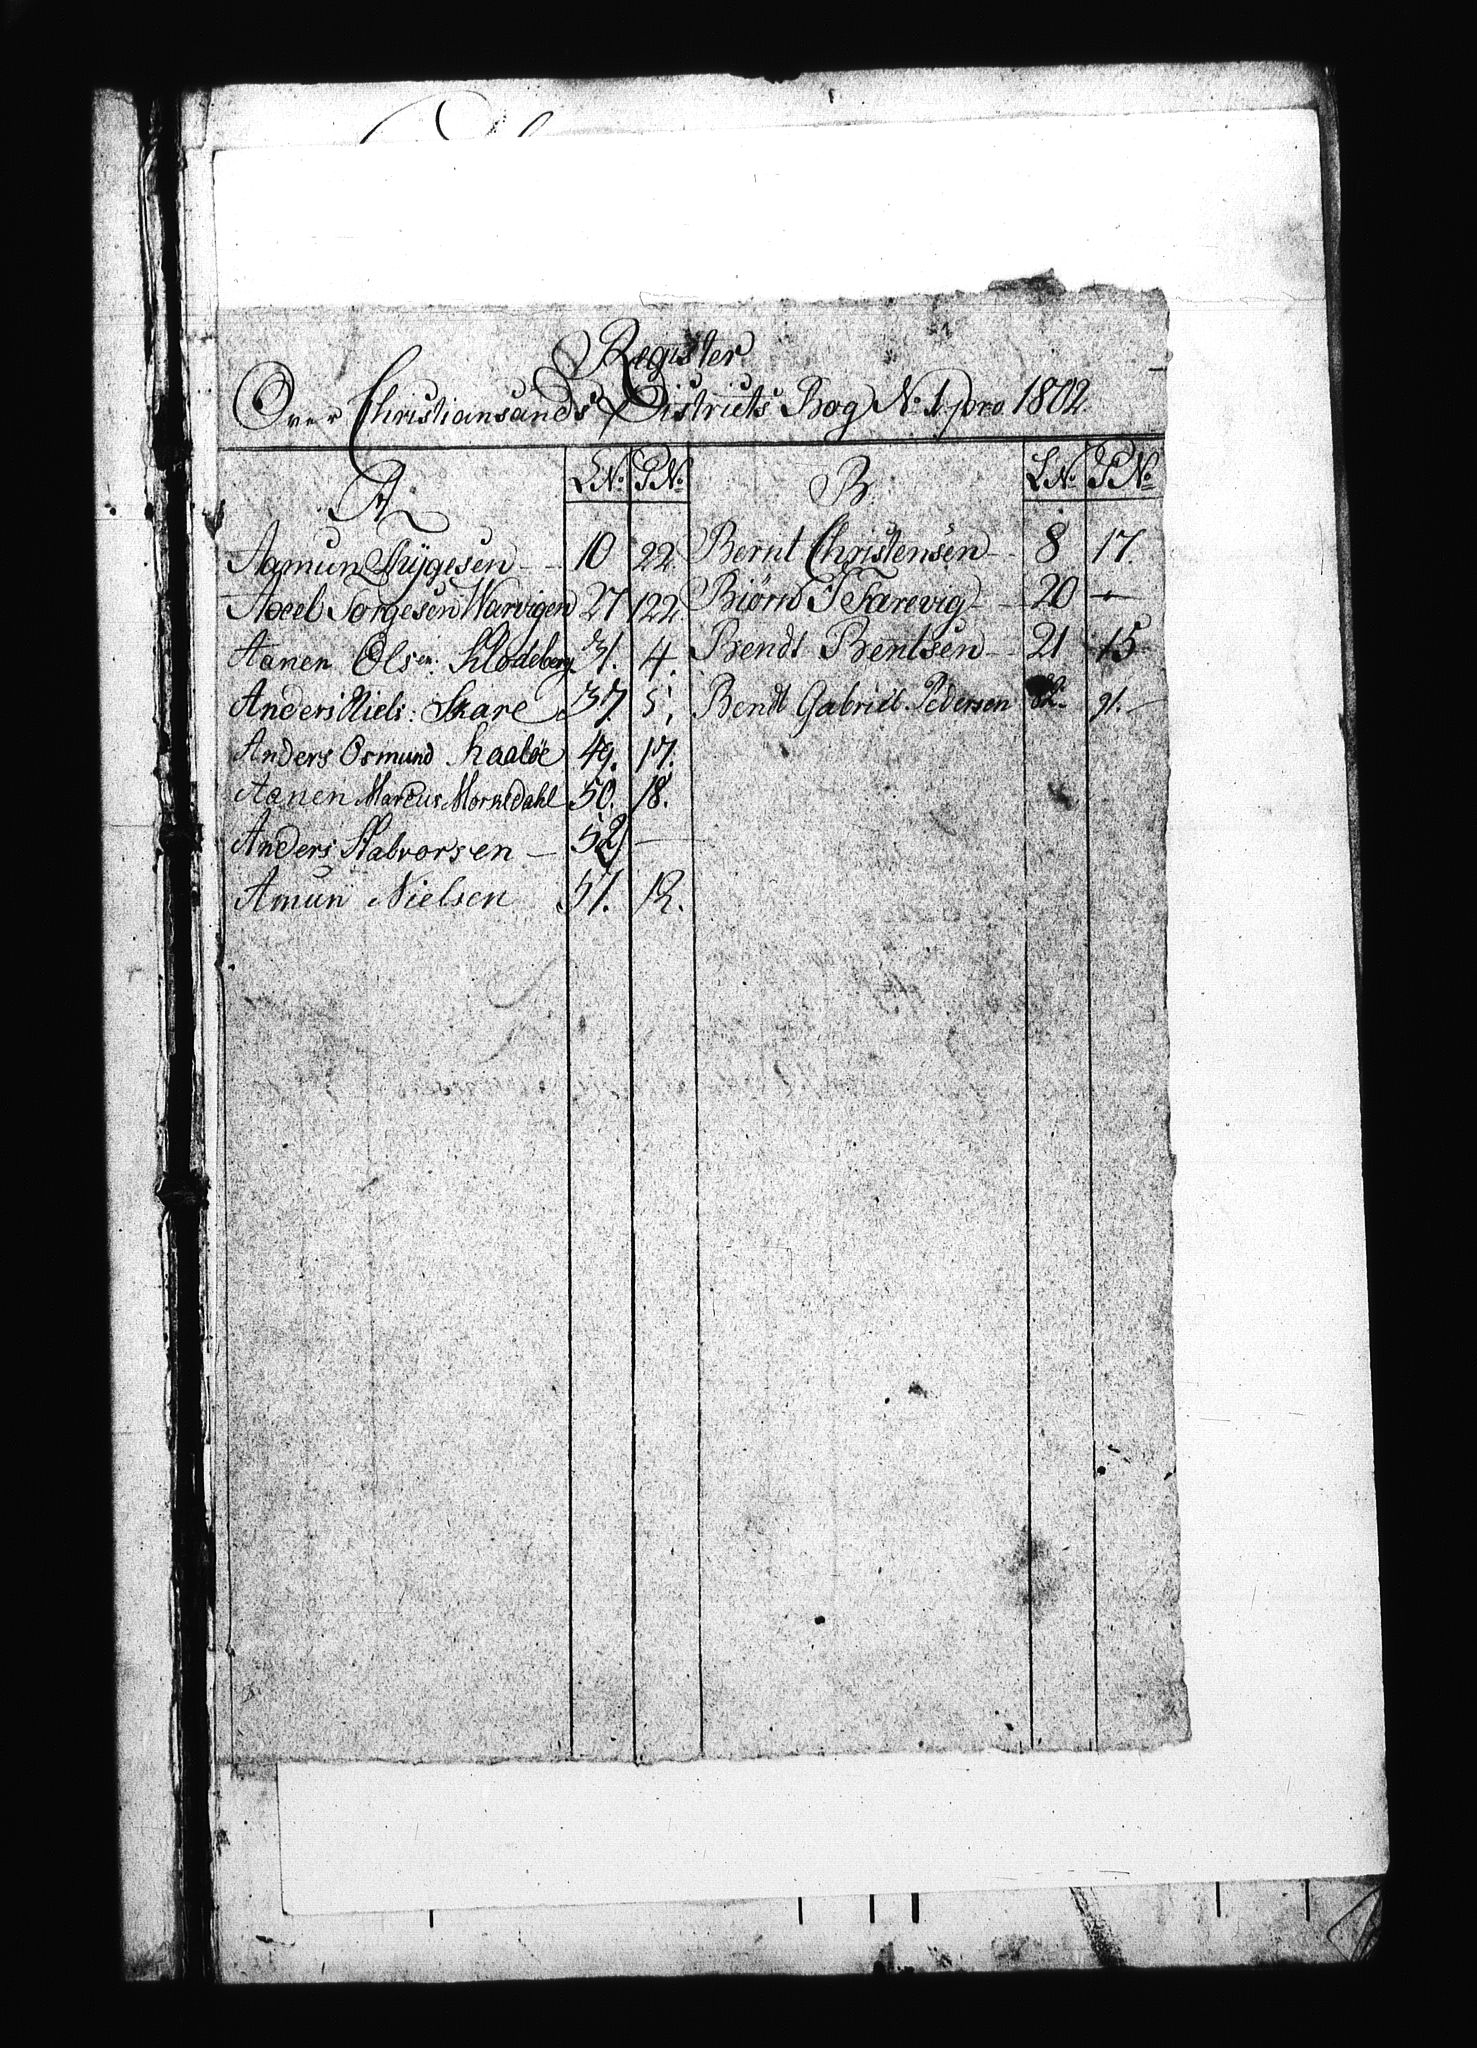 Register
Over Christiansands Districts Bog No: 1 pro 1802.
A. L No: P No: B. L No: P No:
Aamun Thÿgesen 10 22. Bernt Christensen 8 17.
Axel Torgesen Warvigen 27 122. Biörn T Farevig 20 —
Aanen Olsen: Klodeberg 31. 4. Bendt Bentsen 21 15
Anders Niels: Skare 37. 5. Bendt Gabriel Pedersen 91. —
Anders Osmund Kaaløe 49. 17.
Aanen Marcus Mornedahl 50. 18.
Anders Halvorsen — 52 —
Amun Nielsen 57. 12.